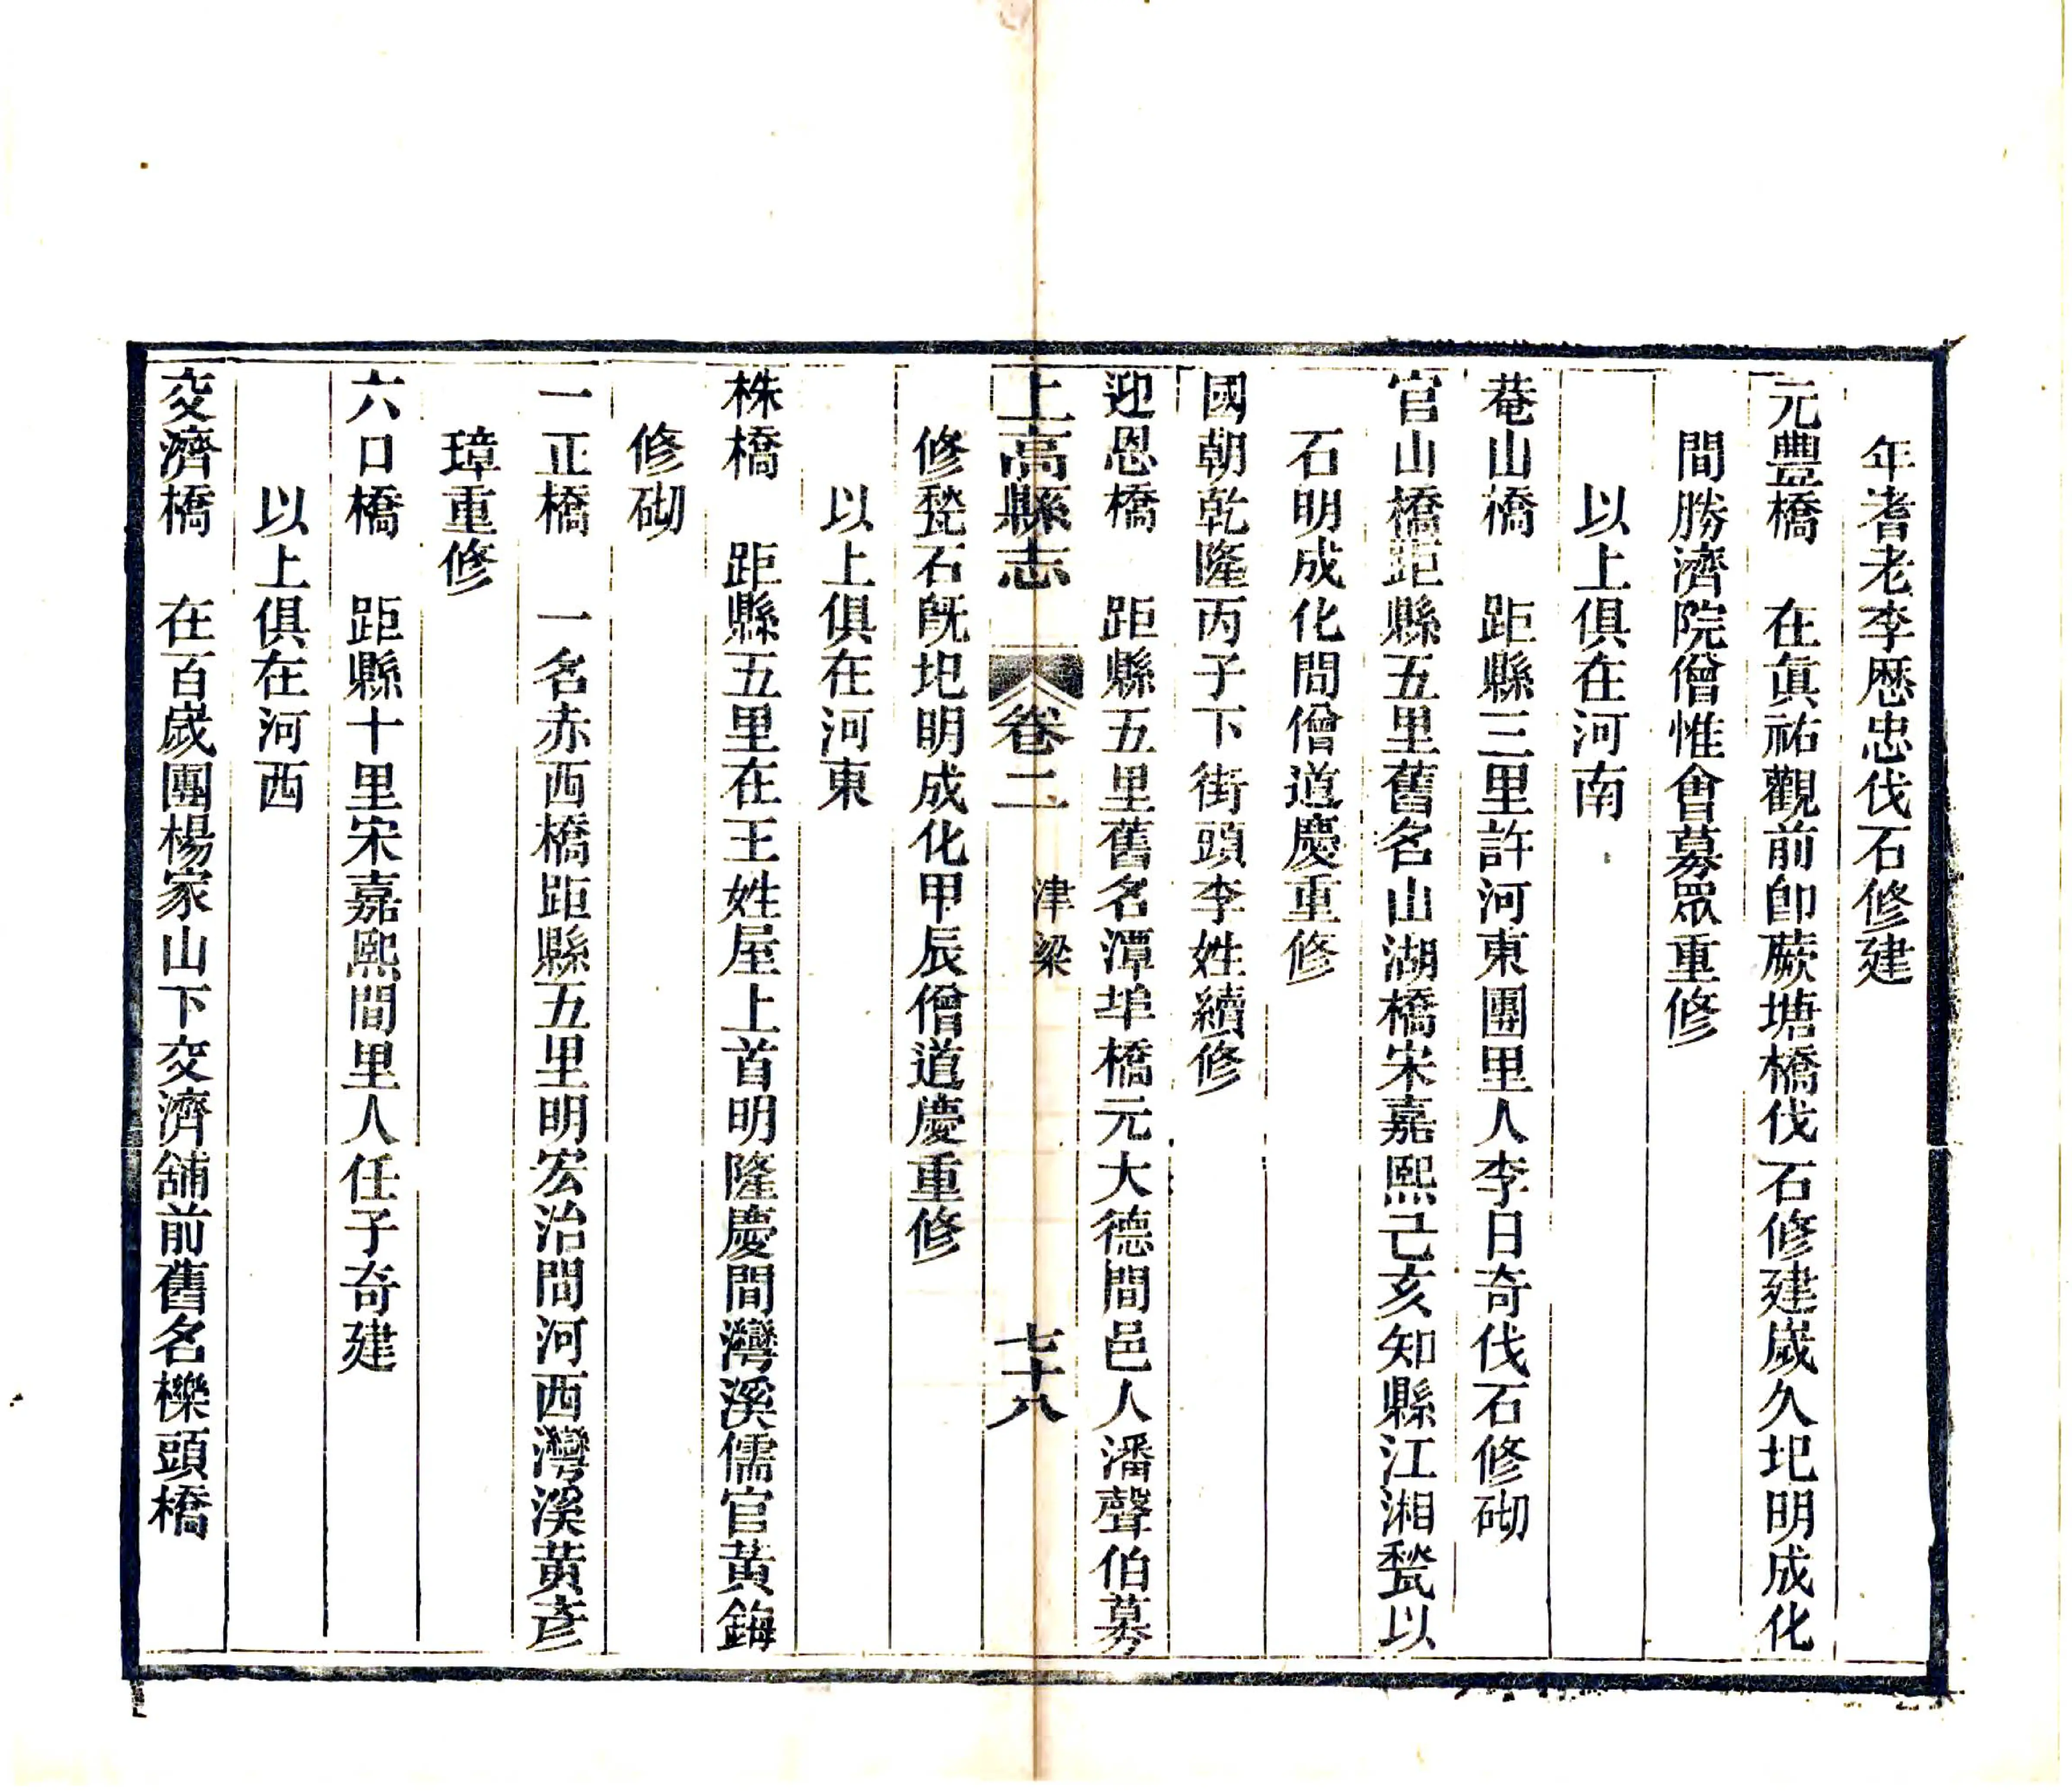 年耆老李歴忠伐石修建
元豐橋　在眞祐觀前卽蕨塘橋伐石修建歲久圯明成化
間勝濟院僧惟會募眾重修
以上俱在河南
菴山橋　距縣三里許河東團里人李日奇伐石修砌
官山橋距縣五里舊名山湖橋宋嘉熙己亥知縣江湘甃以
石明成化間僧道慶重修
國朝乾隆丙子下街頭李姓續修
迎恩橋　距縣五里舊名潭埠橋元大德間邑人潘聲伯募
上高縣志　卷二　津梁　七十八
修甃石旣圯明成化甲辰僧道慶重修
以上俱在河東
株橋　距縣五里在王姓屋上首明隆慶間灣溪儒官黃鋂
修砌
一正橋　一名赤西橋距縣五里明宏治間河西灣溪黃彥
璋重修
六口橋　距縣十里宋嘉熙間里人任子奇建
以上俱在河西
交濟橋　在百歲團楊家山下交濟舖前舊名櫟頭橋